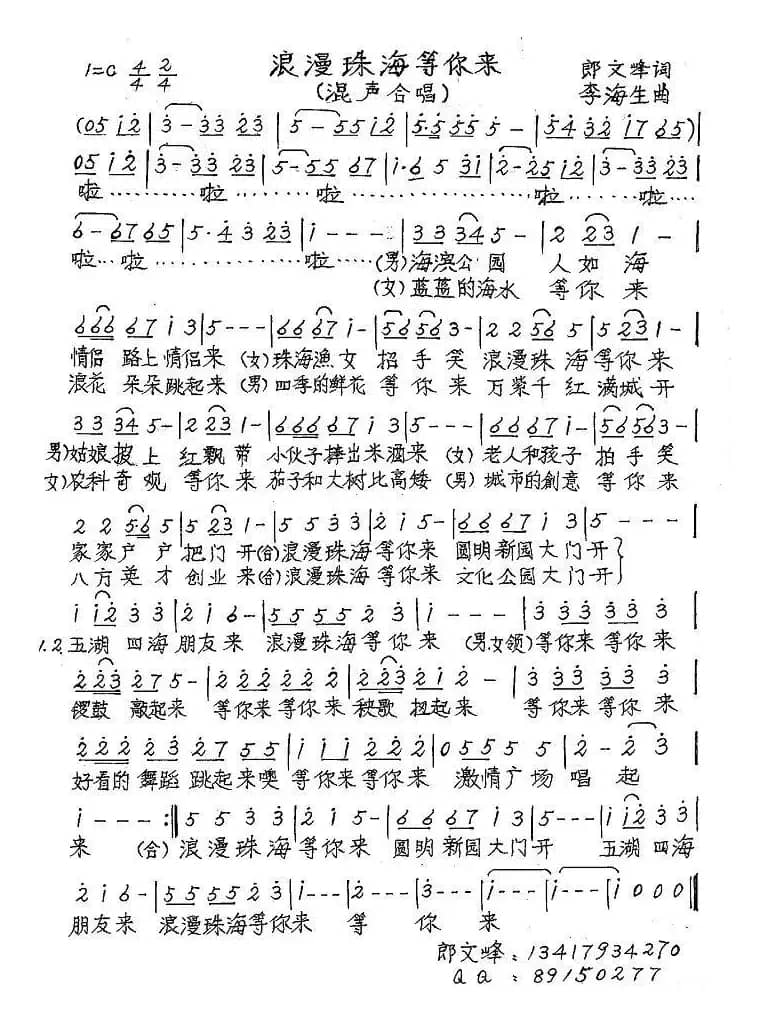 1=C 4/4 2/4 浪漫珠海等你来 郎文峰词
(混声合唱) 李海生曲
(05 i̇2̇ | 3̇ - 3̇3̇ 2̇3̇ | 5 - 55 i̇2̇ | 5·5 55 5 - | 5̇4̇ 3̇2̇ i̇7 65)|
05 i̇2̇ | 3̇ - 3̇3̇ 2̇3̇ | 5 - 55 67 | i̇·6 5 3̇i̇ | 2̇ - 25 i̇2̇ | 3̇ - 3̇3̇ 2̇3̇ |
啦………啦………啦………啦………啦………
6 - 67 65 | 5·4̇ 3̇ 2̇3̇ | i̇ - - - | 3 3 34 5 - | 2 23 1 - |
啦…啦………啦… (男)海滨公园 人如海
(女)蓝蓝的海水 等你来
666 67 i̇ 3̇ | 5 - - - | 66 67 i̇ - | 56 56 3 - | 2 2 56 5 | 5 23 1 - |
情侣 路上情侣来 (女)珠海渔女 招手笑 浪漫珠海等你来
浪花 朵朵跳起来 (男)四季的鲜花 等你来 万荣千红满城开
3 3 34 5 - | 2 23 1 - | 66 67 i̇ 3̇ | 5 - - - | 66 67 i̇ - | 56 56 3 - |
男)姑娘披上 红飘带 小伙子捧出米酒来 (女)老人和孩子 拍手笑
女)农科奇观 等你来 茄子和大树比高矮 (男)城市的創意 等你来
2 2 56 5 | 5 23 1 - | 5 5 3̇ 3̇ | 2̇ i̇ 5 - | 66 67 i̇ 3̇ | 5 - - - |
家家户户把门开(合)浪漫珠海等你来 圆明新园大门开
八方英才创业来(合)浪漫珠海等你来 文化公园大门开
i̇ i̇2̇ 3̇ 3̇ | 2̇ i̇ 6 - | 55 55 2̇ 3̇ | i̇ - - - | 3̇ 3̇3̇ 3̇3̇ 3̇ |
1.2.五湖 四海朋友来 浪漫珠海等你来 (男.女领)等你来等你来
2̇2̇3̇ 2̇7 5 - | 2̇ 2̇2̇ 2̇2̇ 2̇ | 2̇2̇3̇ 2̇i̇ 2̇ - | 3̇ 3̇3̇ 3̇3̇ 3̇ |
锣鼓 敲起来 等你来等你来 秧歌 扭起来 等你来等你来
2̇2̇2̇ 2̇3̇ 2̇7 55 | i̇ i̇i̇ 2̇2̇ 2̇ | 05 55 5 | 2̇ - 2̇ 3̇ |
好看的 舞蹈 跳起来噢 等你来等你来 激情广场 唱起
i̇ - - - :‖ 5 5 3̇ 3̇ | 2̇ i̇ 5 - | 66 67 i̇ 3̇ | 5 - - - | i̇ i̇2̇ 3̇3̇ |
来 (合)浪漫珠海等你来 圆明新园大门开 五湖四海
2̇ i̇ 6 - | 55 55 2̇ 3̇ | i̇ - - - | 2̇ - - - | 3̇ - - - | i̇ - - - | i̇ - - - | i̇ 0 0 0 ‖
朋友来 浪漫珠海等你来 等 你 来
郎文峰:13417934270
QQ:89150277